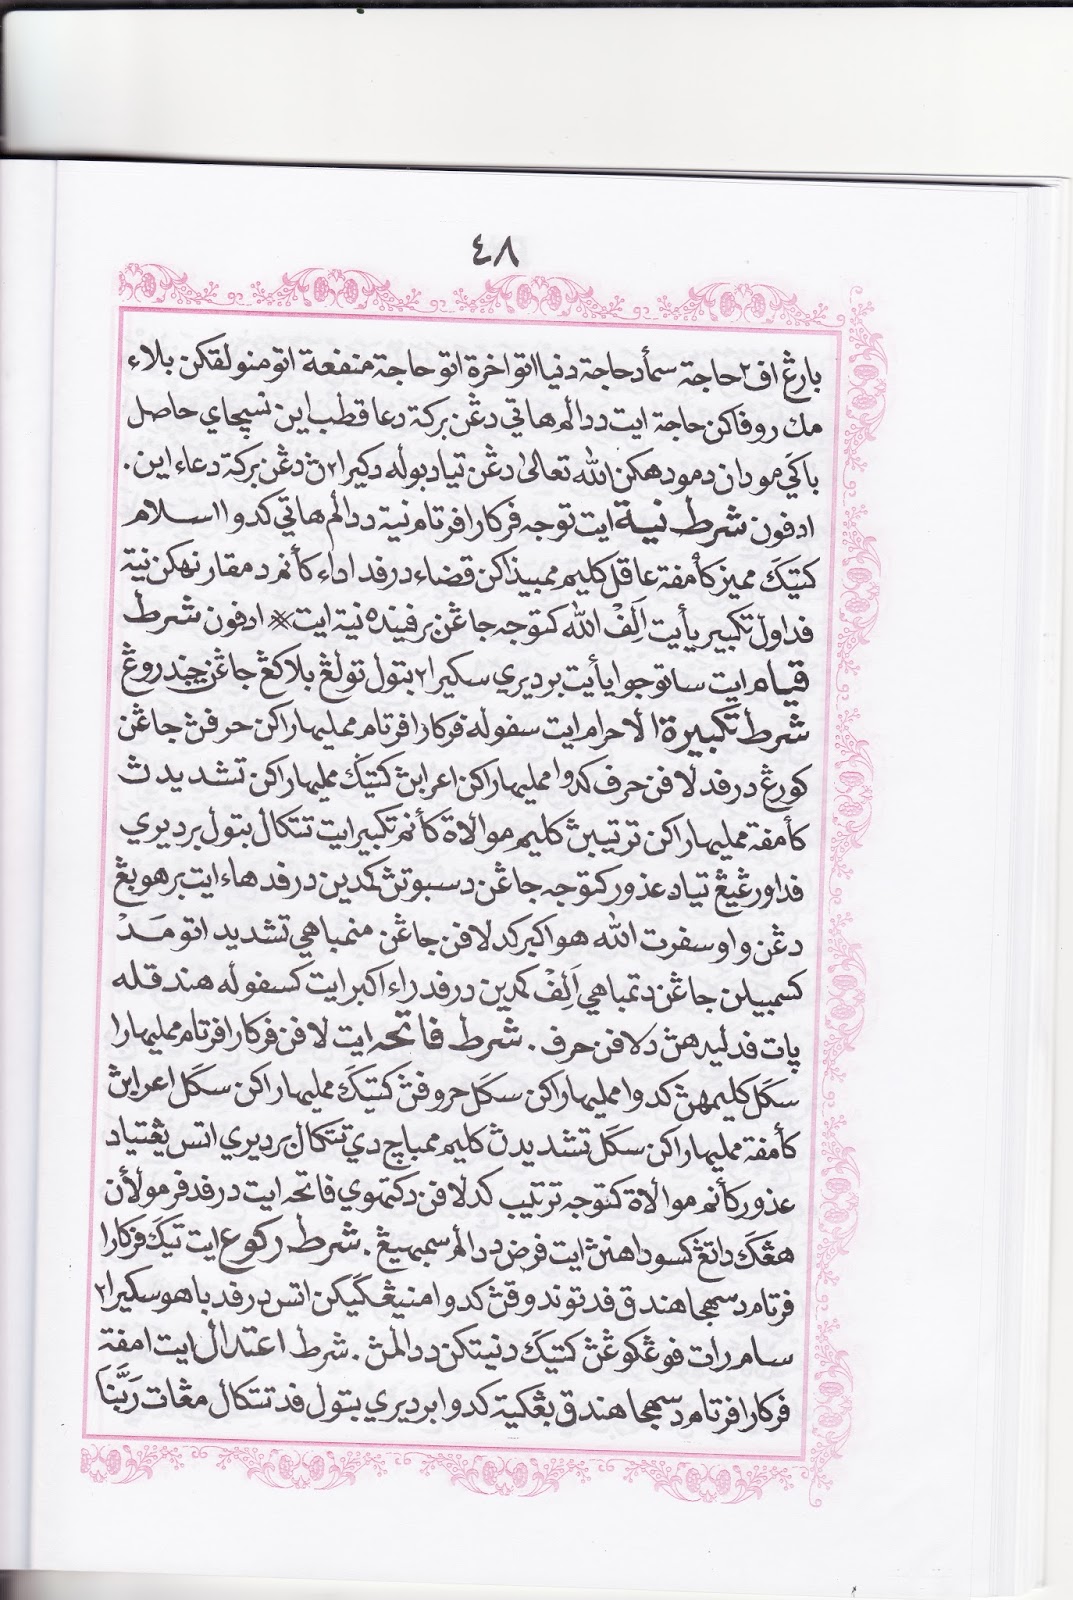 ٤٨
بارڠ اف٢ حاجة سمأد حاجة دنيا اتو اخرة اتو حاجة منفعة اتو منولقكن بلاء
مك روفاكن حاجة ايت ددالم هاتي دڠن بركة دعا قطب اين نسچاي حاصل
باڬي مودان دمودهكن الله تعالى دڠن تياد بوله دكيرا٢ن دڠن بركة دعاء اين .
ادفون شرط نية ايت توجه فركارا فرتام نية ددالم هاتي كدوا اسلام
كتيݢ مميز كأمفة عاقل كليم ممبيذاكن قضاء درفد اداء كأنم دمقارنهكن نية
فد اول تكبير يأيت اَلِفْ الله كتوجه جاڠن برفينده نية ايت * ادفون شرط
قيام ايت ساتو جوا يأيت برديري سكيرا٢ بتول تولڠ بلاكڠ جاڠن چندروڠ
شرط تكبيرة الاحرام ايت سفوله فركارا فرتام ممليهاراكن حرفڽ جاڠن
كورڠ درفد لافن حرف كدوا ممليهاراكن اعرابڽ كتيݢ ممليهاراكن تشديدڽ
كأمفة ممليهاراكن ترتيبڽ كليم موالاة كأنم تكبير ايت تتكال بتول برديري
فد اورڠيڠ تياد عذور كتوجه جاڠن دسبوتڽ كمدين درفد هاء ايت برهوبڠ
دڠن واو سفرت الله هو اكبر كدلافن جاڠن منمباهي تشديد اتو مَدْ
كسمبيلن جاڠن دتمباهي اَلِفْ كمدين درفد راء اكبر ايت كسفوله هندقله
پات فد ليدهڽ دلافن حرف . شرط فاتحه ايت لافن فركارا فرتام ممليهارا
سݢل كليمهڽ كدوا ممليهاراكن سݢل حروفڽ كتيݢ ممليهاراكن سݢل اعرابڽ
كأمفة ممليهاراكن سݢل تشديدڽ كليم ممباچ دي تتكال برديري اتس يڠتياد
عذور كأنم موالاة كتوجه ترتيب كدلافن دكتهوي فاتحه ايت درفد فرمولأن
هڠݢ داتڠ كسوداهنڽ ايت فرض ددالم سمبهيڠ . شرط ركوع ايت تيݢ فركارا
فرتام دسهجا هندق فد توندوقڽ كدوا منيڠݢيكن اتس درفد باهو سكيرا٢
سام رات فوڠݢوڠڽ كتيݢ دنيتكن ددالمڽ . شرط اعتدال ايت امفة
فركارا فرتام دسهجا هندق بڠكية كدوا برديري بتول فد تتكال مڠات رَبَّنَا